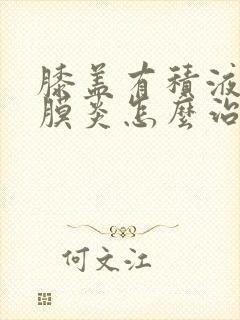 膝盖有積液
膜炎怎麼治
何文江